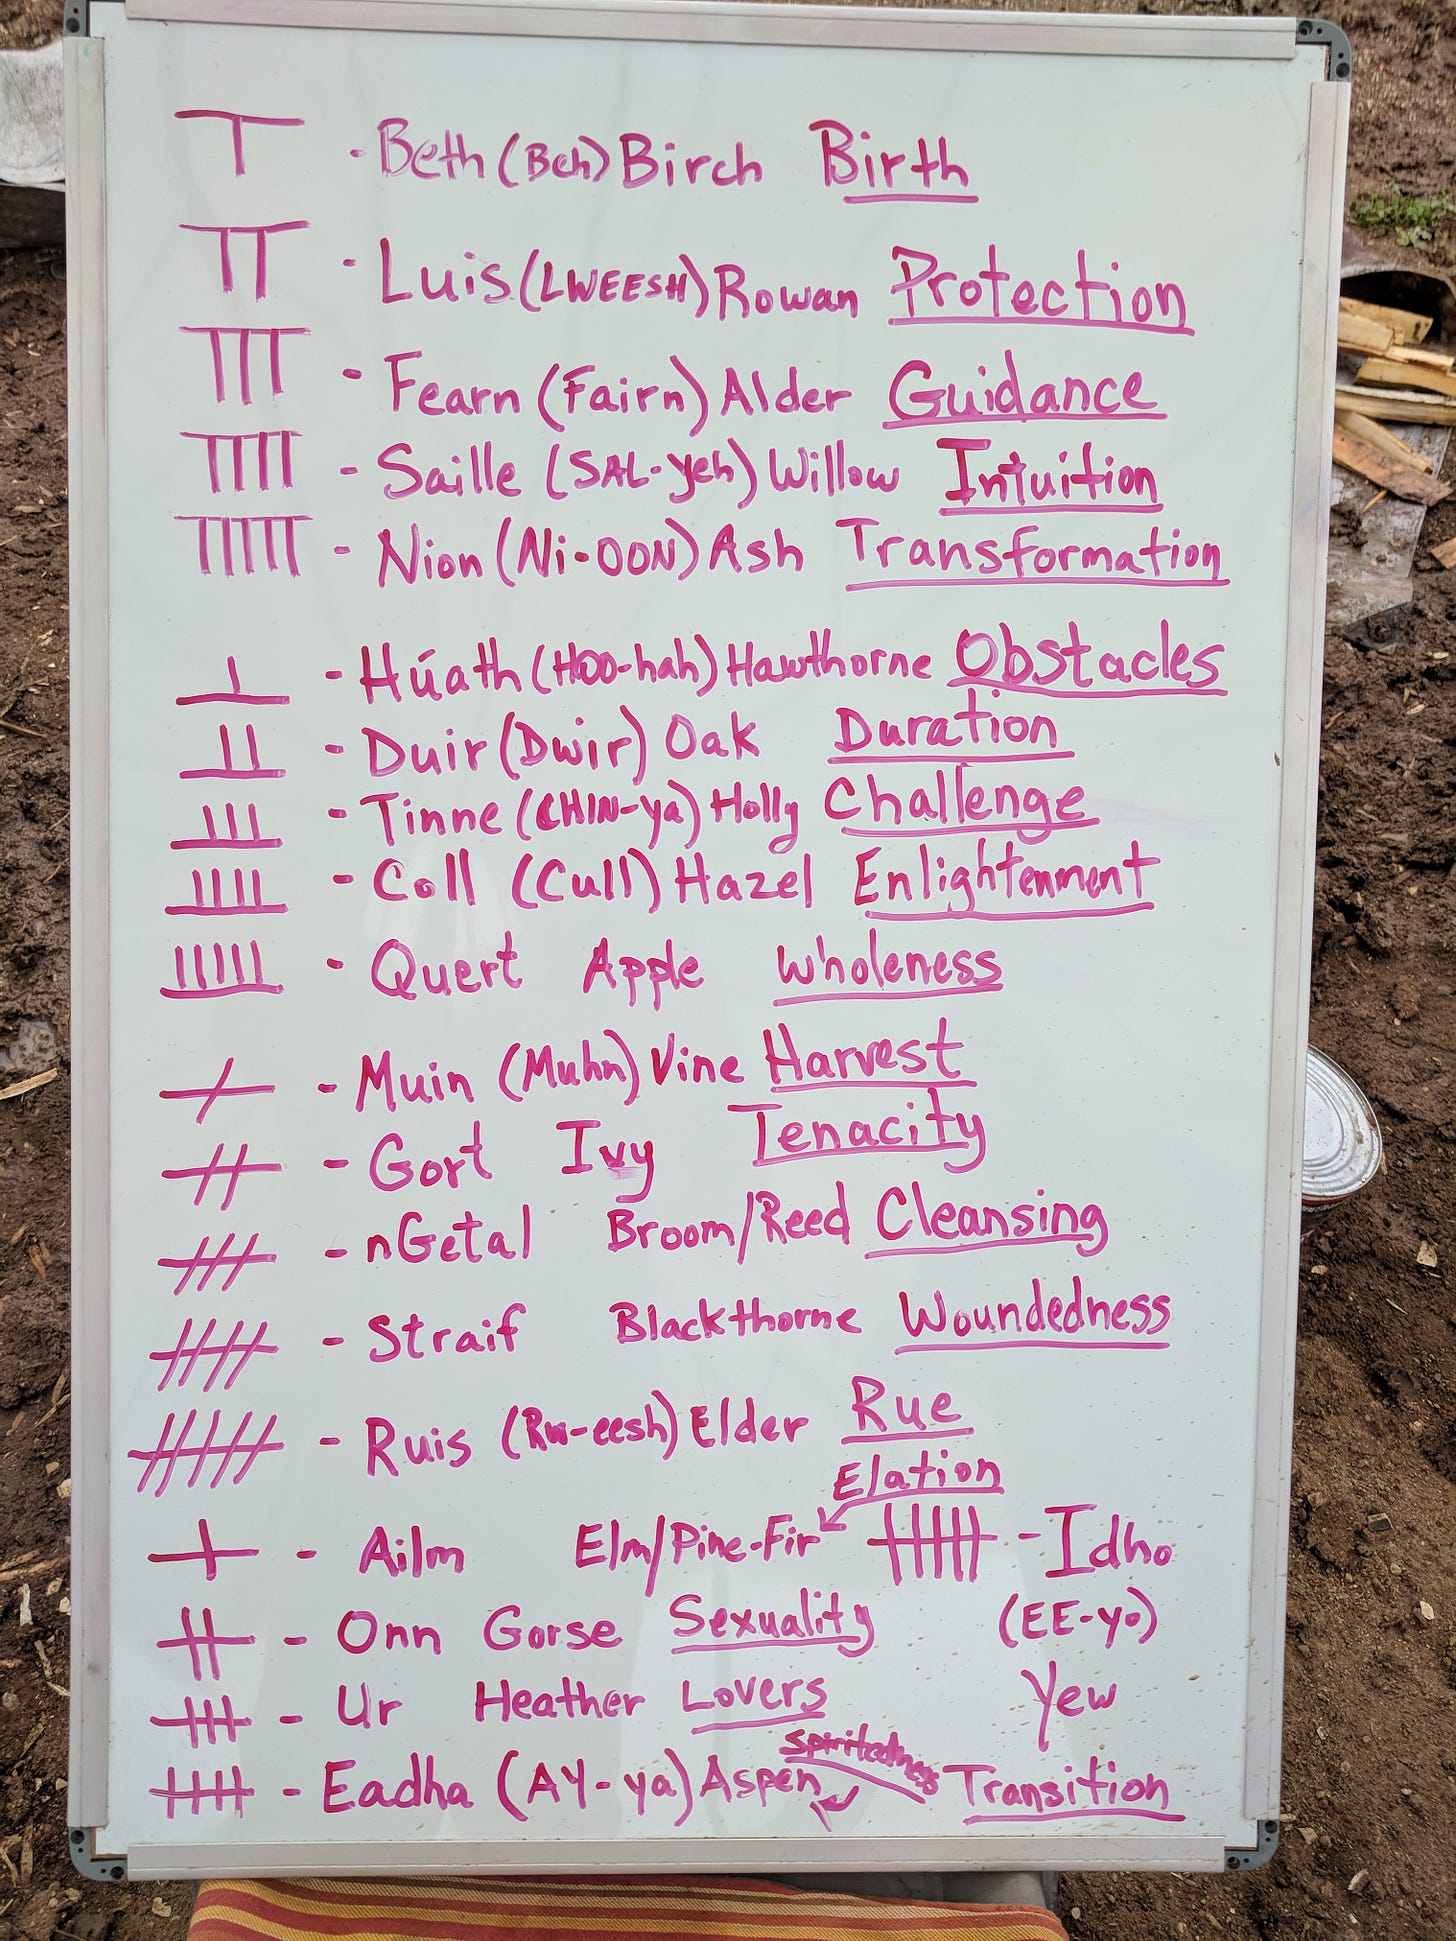 - Beth (Beh) Birch Birth
- Luis (LWEESH) Rowan Protection
- Fearn (Fairn) Alder Guidance
- Saille (SAL-yeh) Willow Intuition
- Nion (Ni-OON) Ash Transformation
- Húath (HOO-hah) Hawthorne Obstacles
- Duir (Dwir) Oak Duration
- Tinne (CHIN-ya) Holly Challenge
- Coll (Cull) Hazel Enlightenment
- Quert Apple Wholeness
- Muin (Muhn) Vine Harvest
- Gort Ivy Tenacity
- nGetal Broom/Reed Cleansing
- Straif Blackthorne Woundedness
- Ruis (Rw-eesh) Elder Rue
Elation
- Ailm Elm/Pine-Fir
- Onn Gorse Sexuality
- Ur Heather Lovers
Spiritedness
- Eadha (AY-ya) Aspen
- Idho
(EE-yo)
Yew
Transition